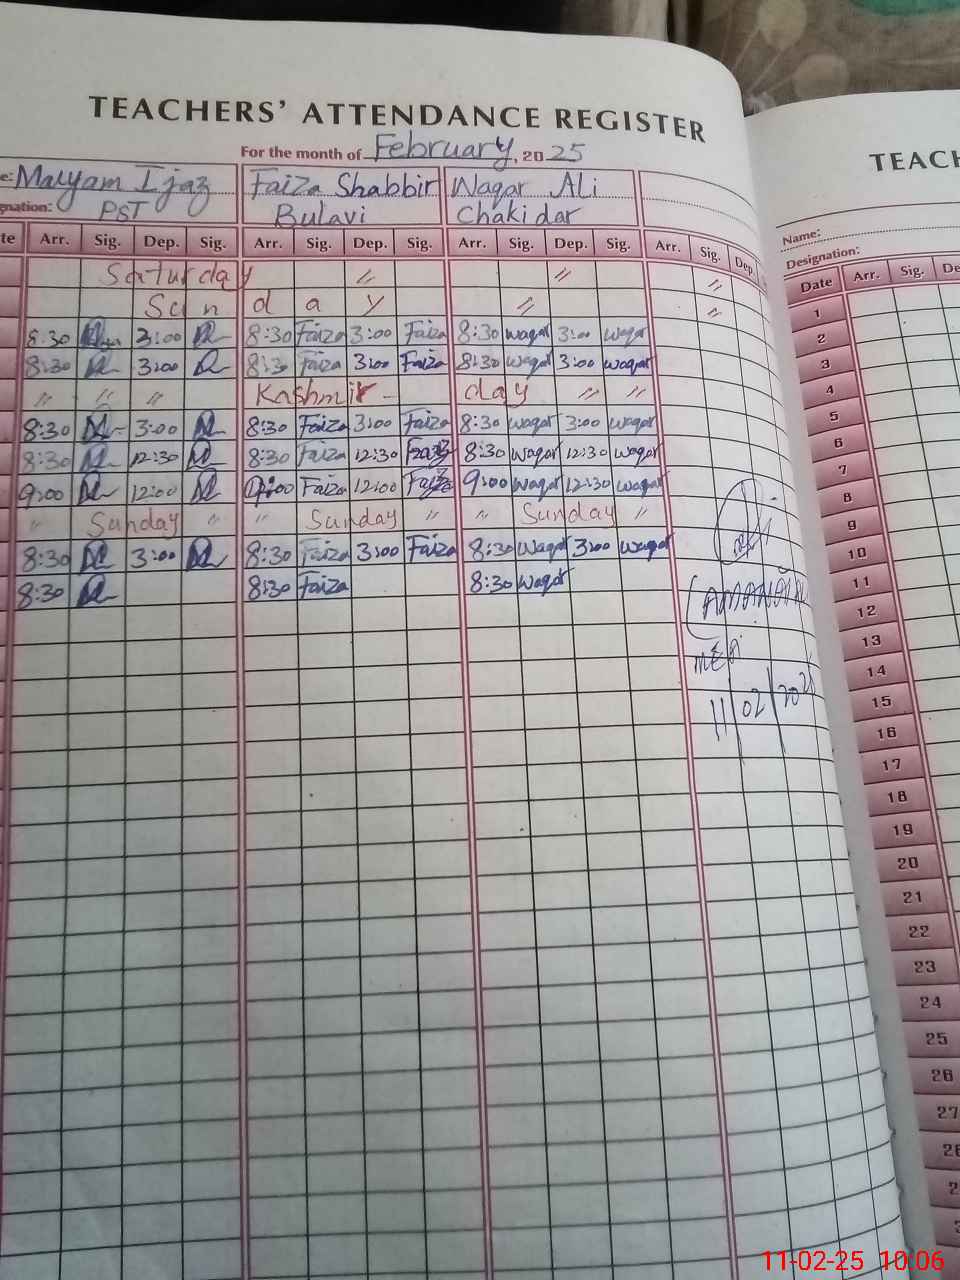 TEACHERS' ATTENDANCE REGISTER
For the month of February, 2025
e: Malyam Ijaz Faiza Shabbir Waqar ALi
gnation: PST Bulavi Chakidar
te Arr. Sig. Dep. Sig. Arr. Sig. Dep. Sig. Arr. Sig. Dep. Sig. Arr. Sig. Dep.
Saturday 〃 〃 〃
Sunday 〃 〃
8:30 3:00 8:30 Faiza 3:00 Faiza 8:30 waqar 3:00 waqar
8:30 3:00 8:30 Faiza 3:00 Faiza 8:30 waqar 3:00 waqar
〃 〃 〃 Kashmir - day 〃 〃
8:30 3:00 8:30 Faiza 3:00 Faiza 8:30 waqar 3:00 waqar
8:30 12:30 8:30 Faiza 12:30 Faiza 8:30 waqar 12:30 waqar
9:00 12:00 9:00 Faiza 12:00 Faiza 9:00 waqar 12:30 waqar
〃 Sunday 〃 〃 Sunday 〃 〃 Sunday 〃
8:30 3:00 8:30 Faiza 3:00 Faiza 8:30 waqar 3:00 waqar
8:30 8:30 Faiza 8:30 waqar
MEA
11/02/2025
TEACH
Name:
Designation:
Date Arr. Sig. De
1
2
3
4
5
6
7
8
9
10
11
12
13
14
15
16
17
18
19
20
21
22
23
24
25
26
27
11-02-25 10:06